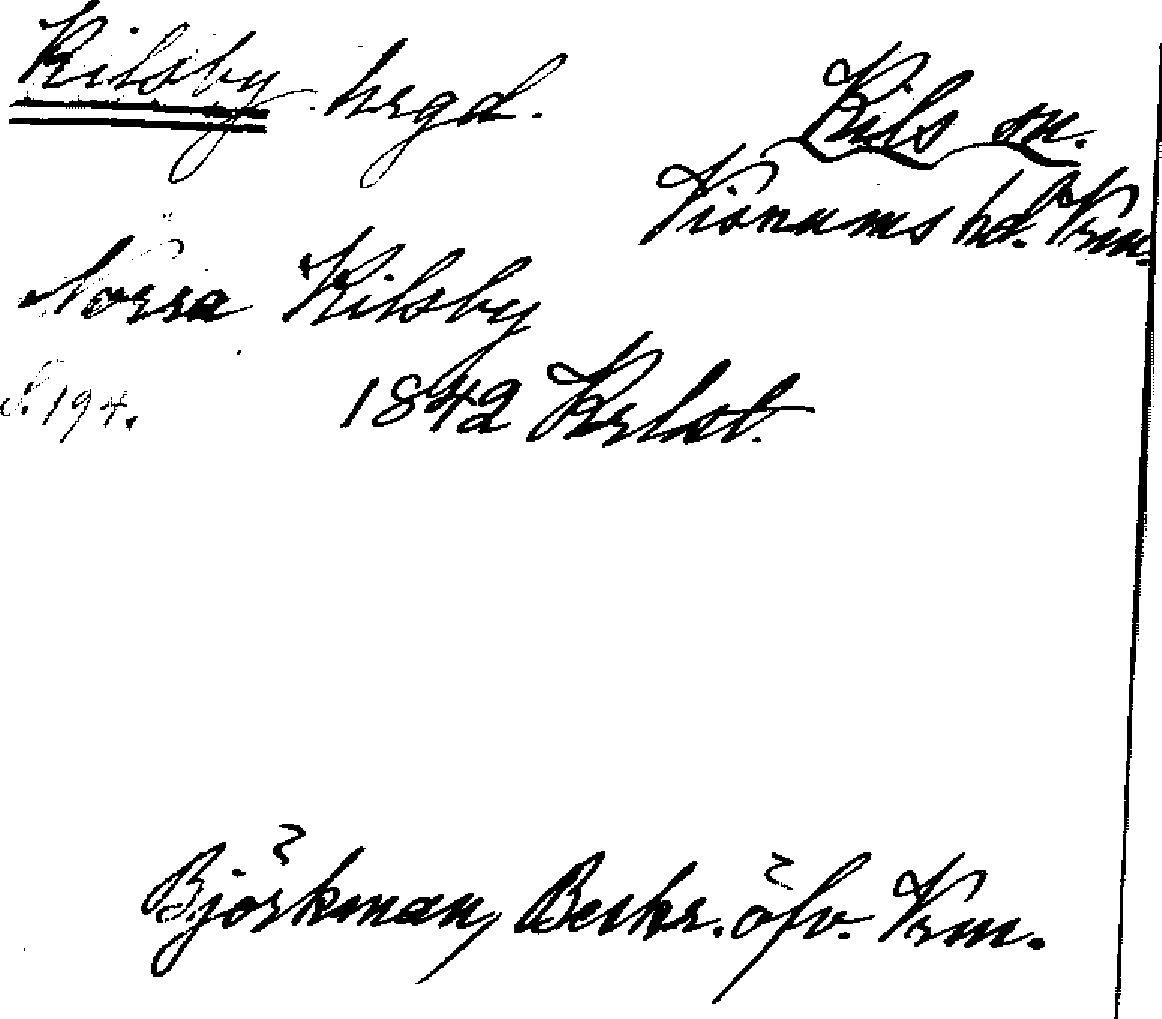 Kilsby hrgd.
Kils sn.
Visnums hd. Vrm.
Norra Kilsby
S. 194. 1842 Krlst.
Björkman, Beskr. öfv. Vrm.